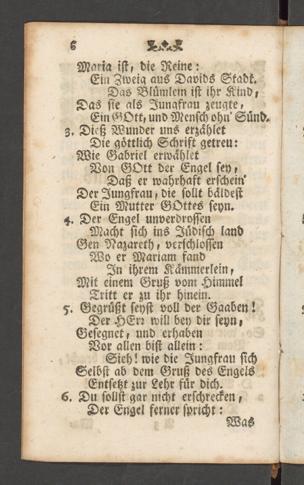 6
Maria ist, die Reine:
Ein Zweig aus Davids Stadt.
Das Blümlein ist ihr Kind,
Das sie als Jungfrau zeugte,
Ein GOtt, und Mensch ohn' Sünd.
3. Dieß Wunder uns erzählet
Die göttlich Schrift getreu:
Wie Gabriel erwählet
Von GOtt der Engel sey,
Daß er wahrhaft erschein'
Der Jungfrau, die sollt bäldest
Ein Mutter GOttes seyn.
4. Der Engel unverdrossen
Macht sich ins Jüdisch land
Gen Nazareth, verschlossen
Wo er Mariam fand
In ihrem Kämmerlein,
Mit einem Gruß vom Himmel
Tritt er zu ihr hinein.
5. Gegrüßt seyst voll der Gaaben!
Der HErr will bey dir seyn,
Gesegnet, und erhaben
Vor allen bist allein:
Sieh! wie die Jungfrau sich
Selbst ab dem Gruß des Engels
Entsetzt zur Lehr für dich.
6. Du sollst gar nicht erschrecken,
Der Engel ferner spricht:
Was